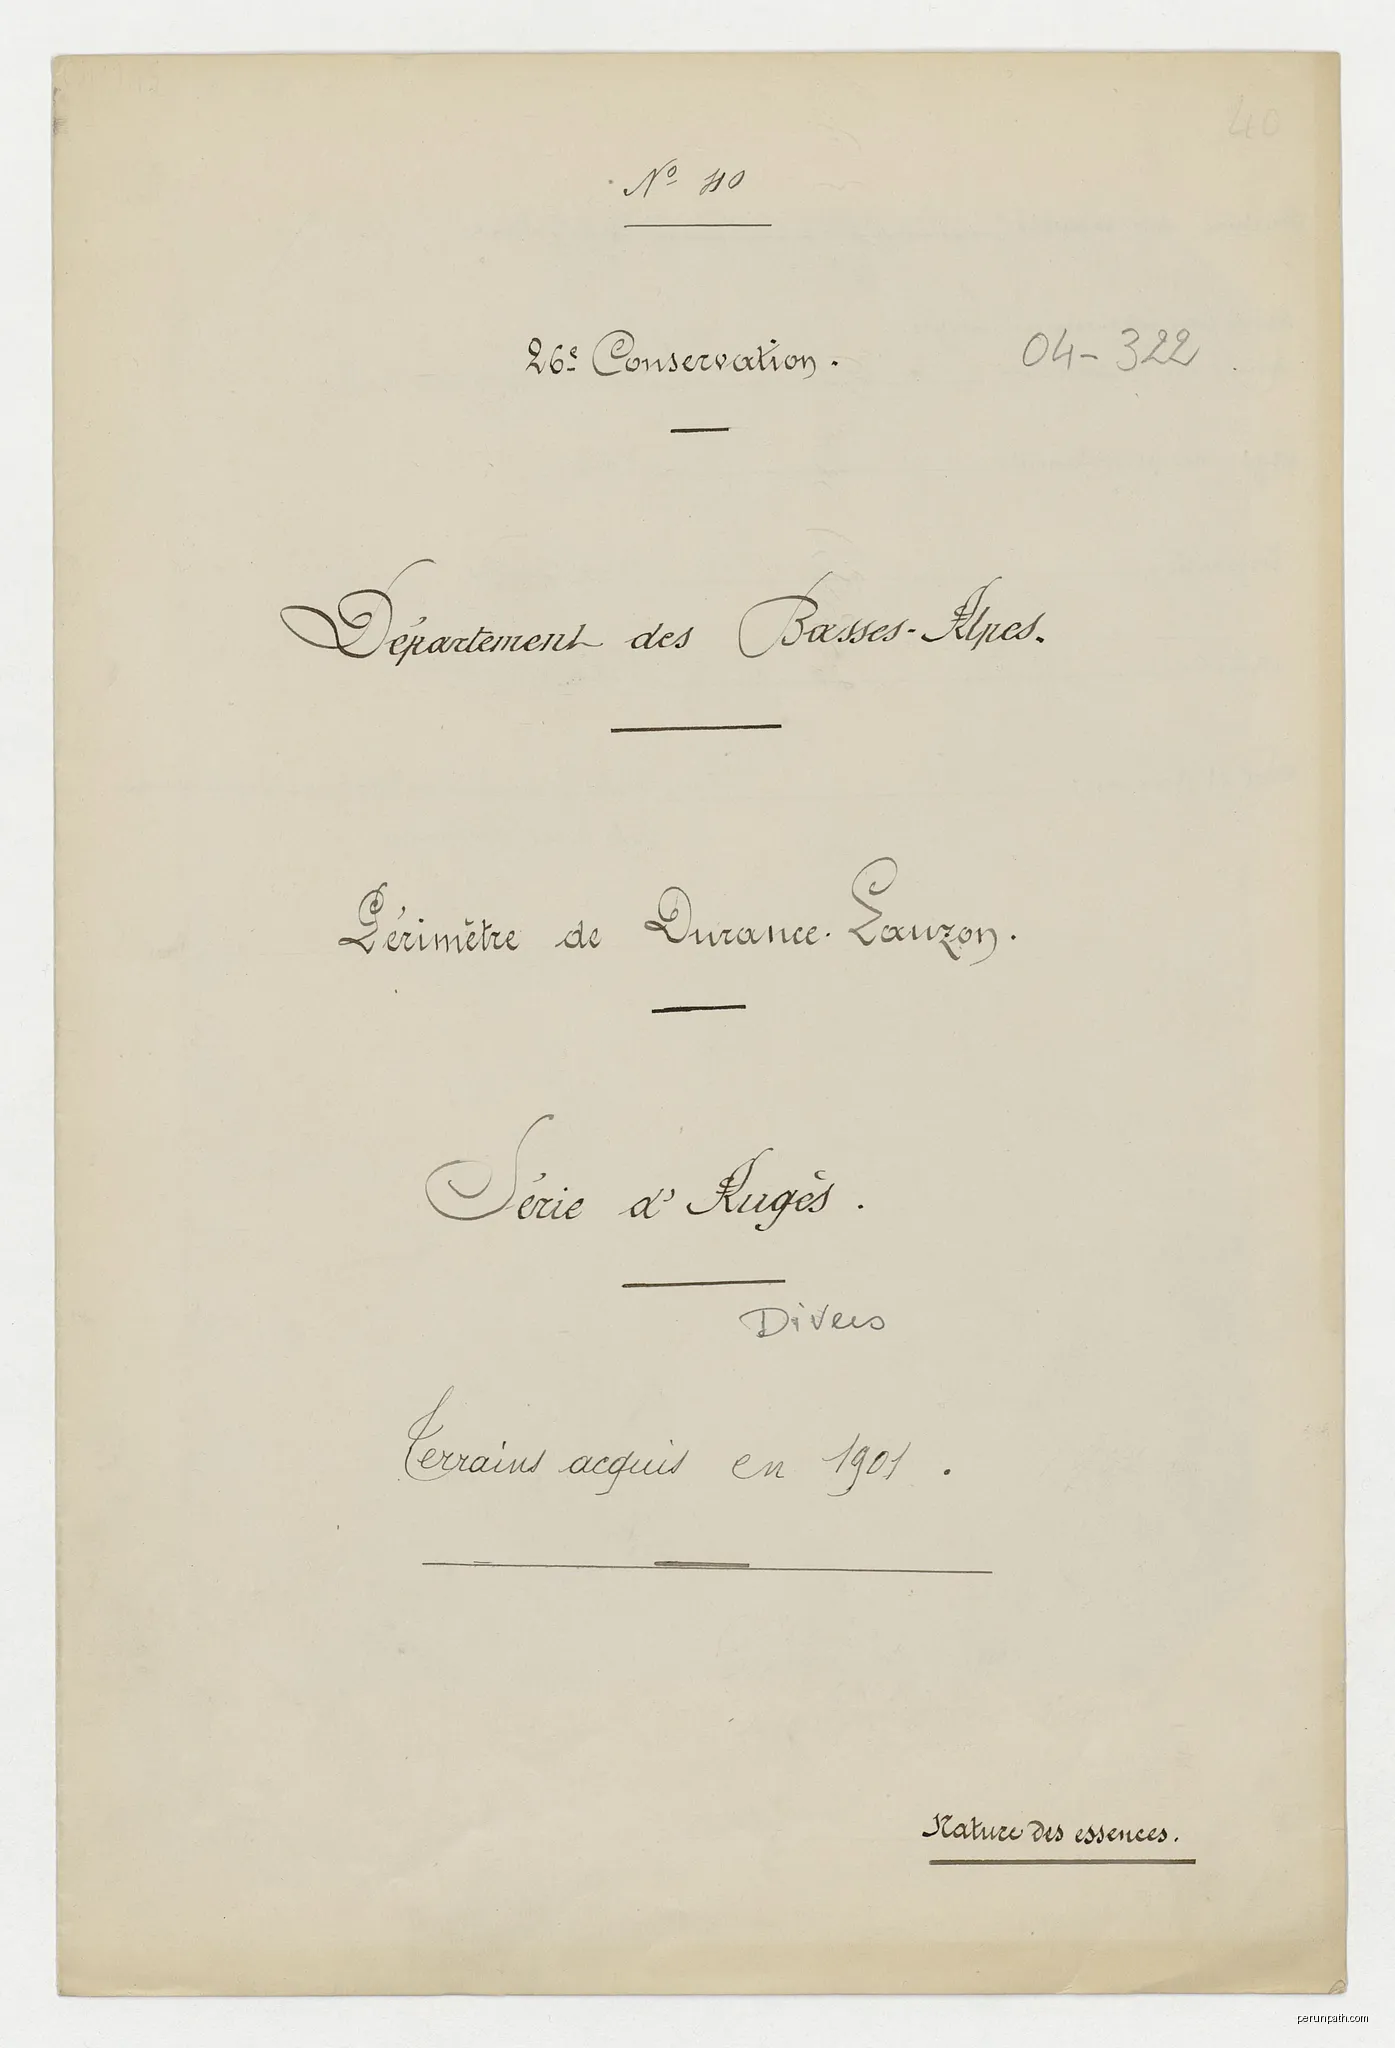 40
Nº 40
26e Conservation.
04-322
Département des Basses-Alpes.
Périmètre de Durance-Lauzon.
Série d'Augès.
Divers
Terrains acquis en 1901.
Nature des essences.
perunpath.com